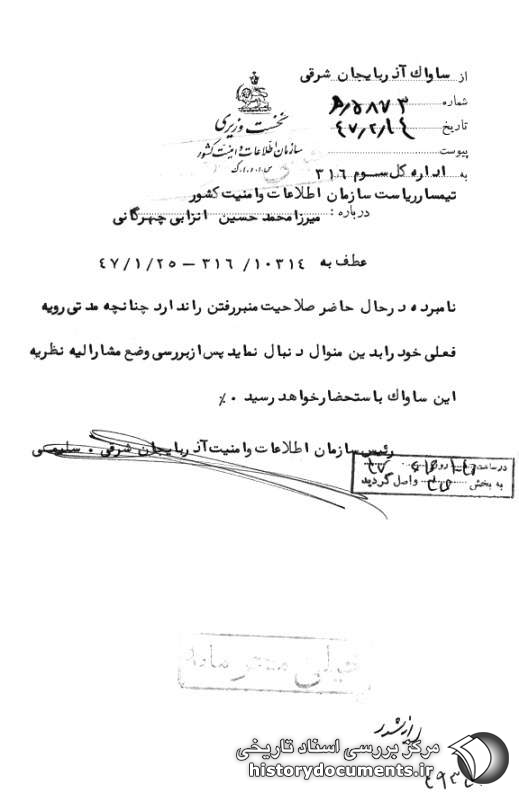 از ساواك آذربایجان شرقی
شماره ۵۸۷۳/ه‍
تاریخ ۴۷/۲/۱۴
پیوست
به اداره کل سوم ۳۱۶
نخست وزیری
سازمان اطلاعات و امنیت کشور
س.ا.و.ا.ک
تیمسار ریاست سازمان اطلاعات وامنیت کشور
درباره : میرزا محمد حسین انزابی چهرگانی
عطف به ۱۰۳۱۴/ ۳۱۶ – ۴۷/۱/۲۵
نامبرده در حال حاضر صلاحیت منبر رفتن را ندارد چنانچه مدتی رویه
فعلی خود را بدین منوال دنبال نماید پس از بررسی وضع مشارالیه نظریه
این ساواك باستحضار خواهد رسید ۰٪
رئیس سازمان اطلاعات وامنیت آذربایجان شرقی ۰ سلیمی
در ساعت روز
به بخش واصل گردید
خیلی محرمانه
مرکز بررسی اسناد تاریخی
historydocuments.ir